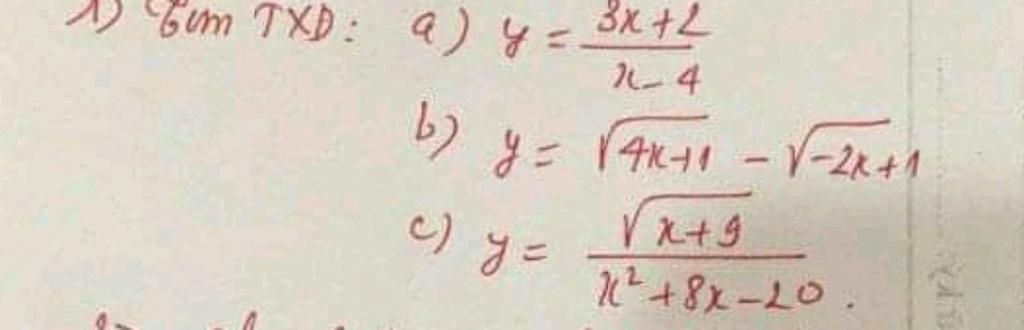 1) Tìm TXD: a) y = \frac{3x+2}{x-4}
b) y = \sqrt{4x+1} - \sqrt{-2x+1}
c) y = \frac{\sqrt{x+9}}{x^2+8x-20}.